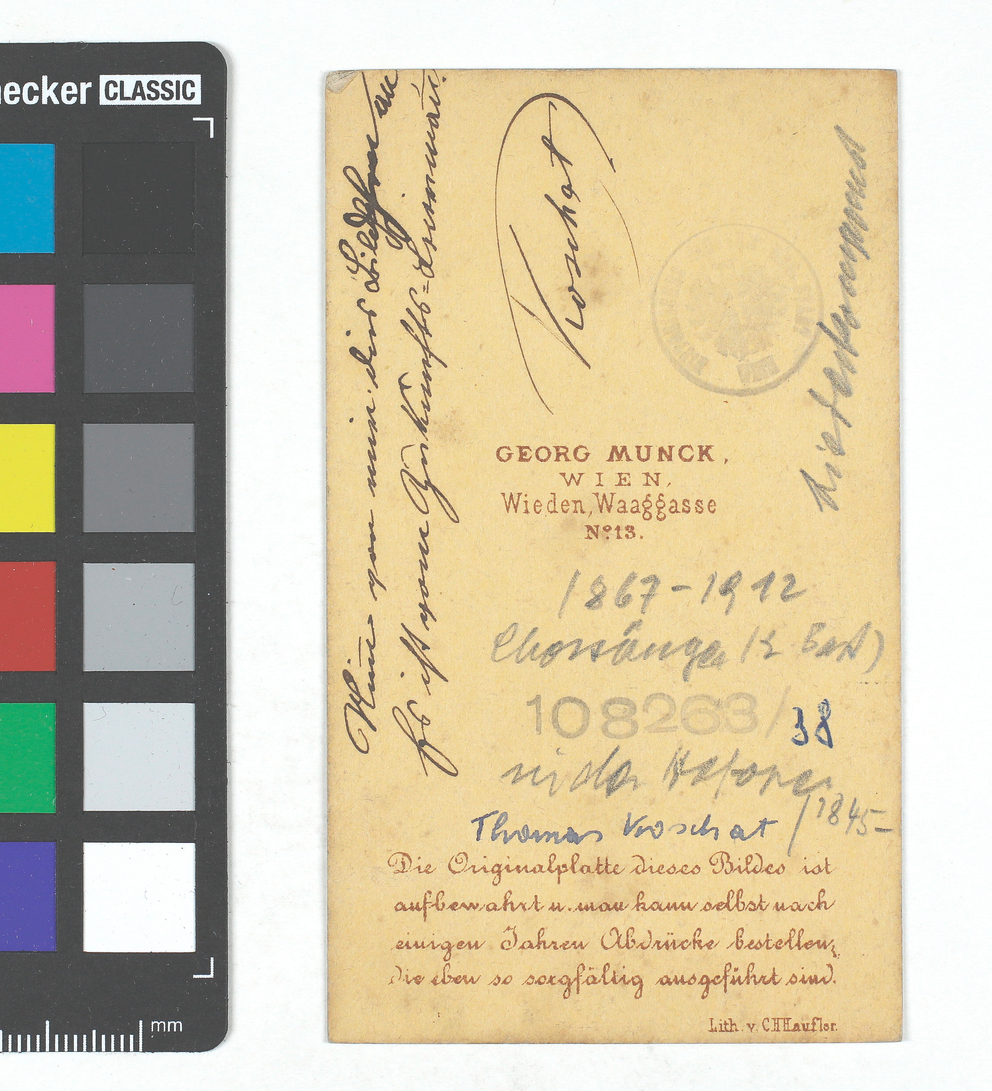 ecker CLASSIC
Koschat
von mir dies Bildchen an
Es ist vom Zukunfts=
GEORG MUNCK,
WIEN,
Wieden, Waaggasse
No. 13.
1867-1912
Chorsänger
108263/38
in der Hofoper
Thomas Koschat /1845-
Die Originalplatte dieses Bildes ist
aufbewahrt u. man kann selbst nach
einigen Jahren Abdrücke bestellen,
die eben so sorgfältig ausgeführt sind.
Lith. v. C H Haufler.
mm